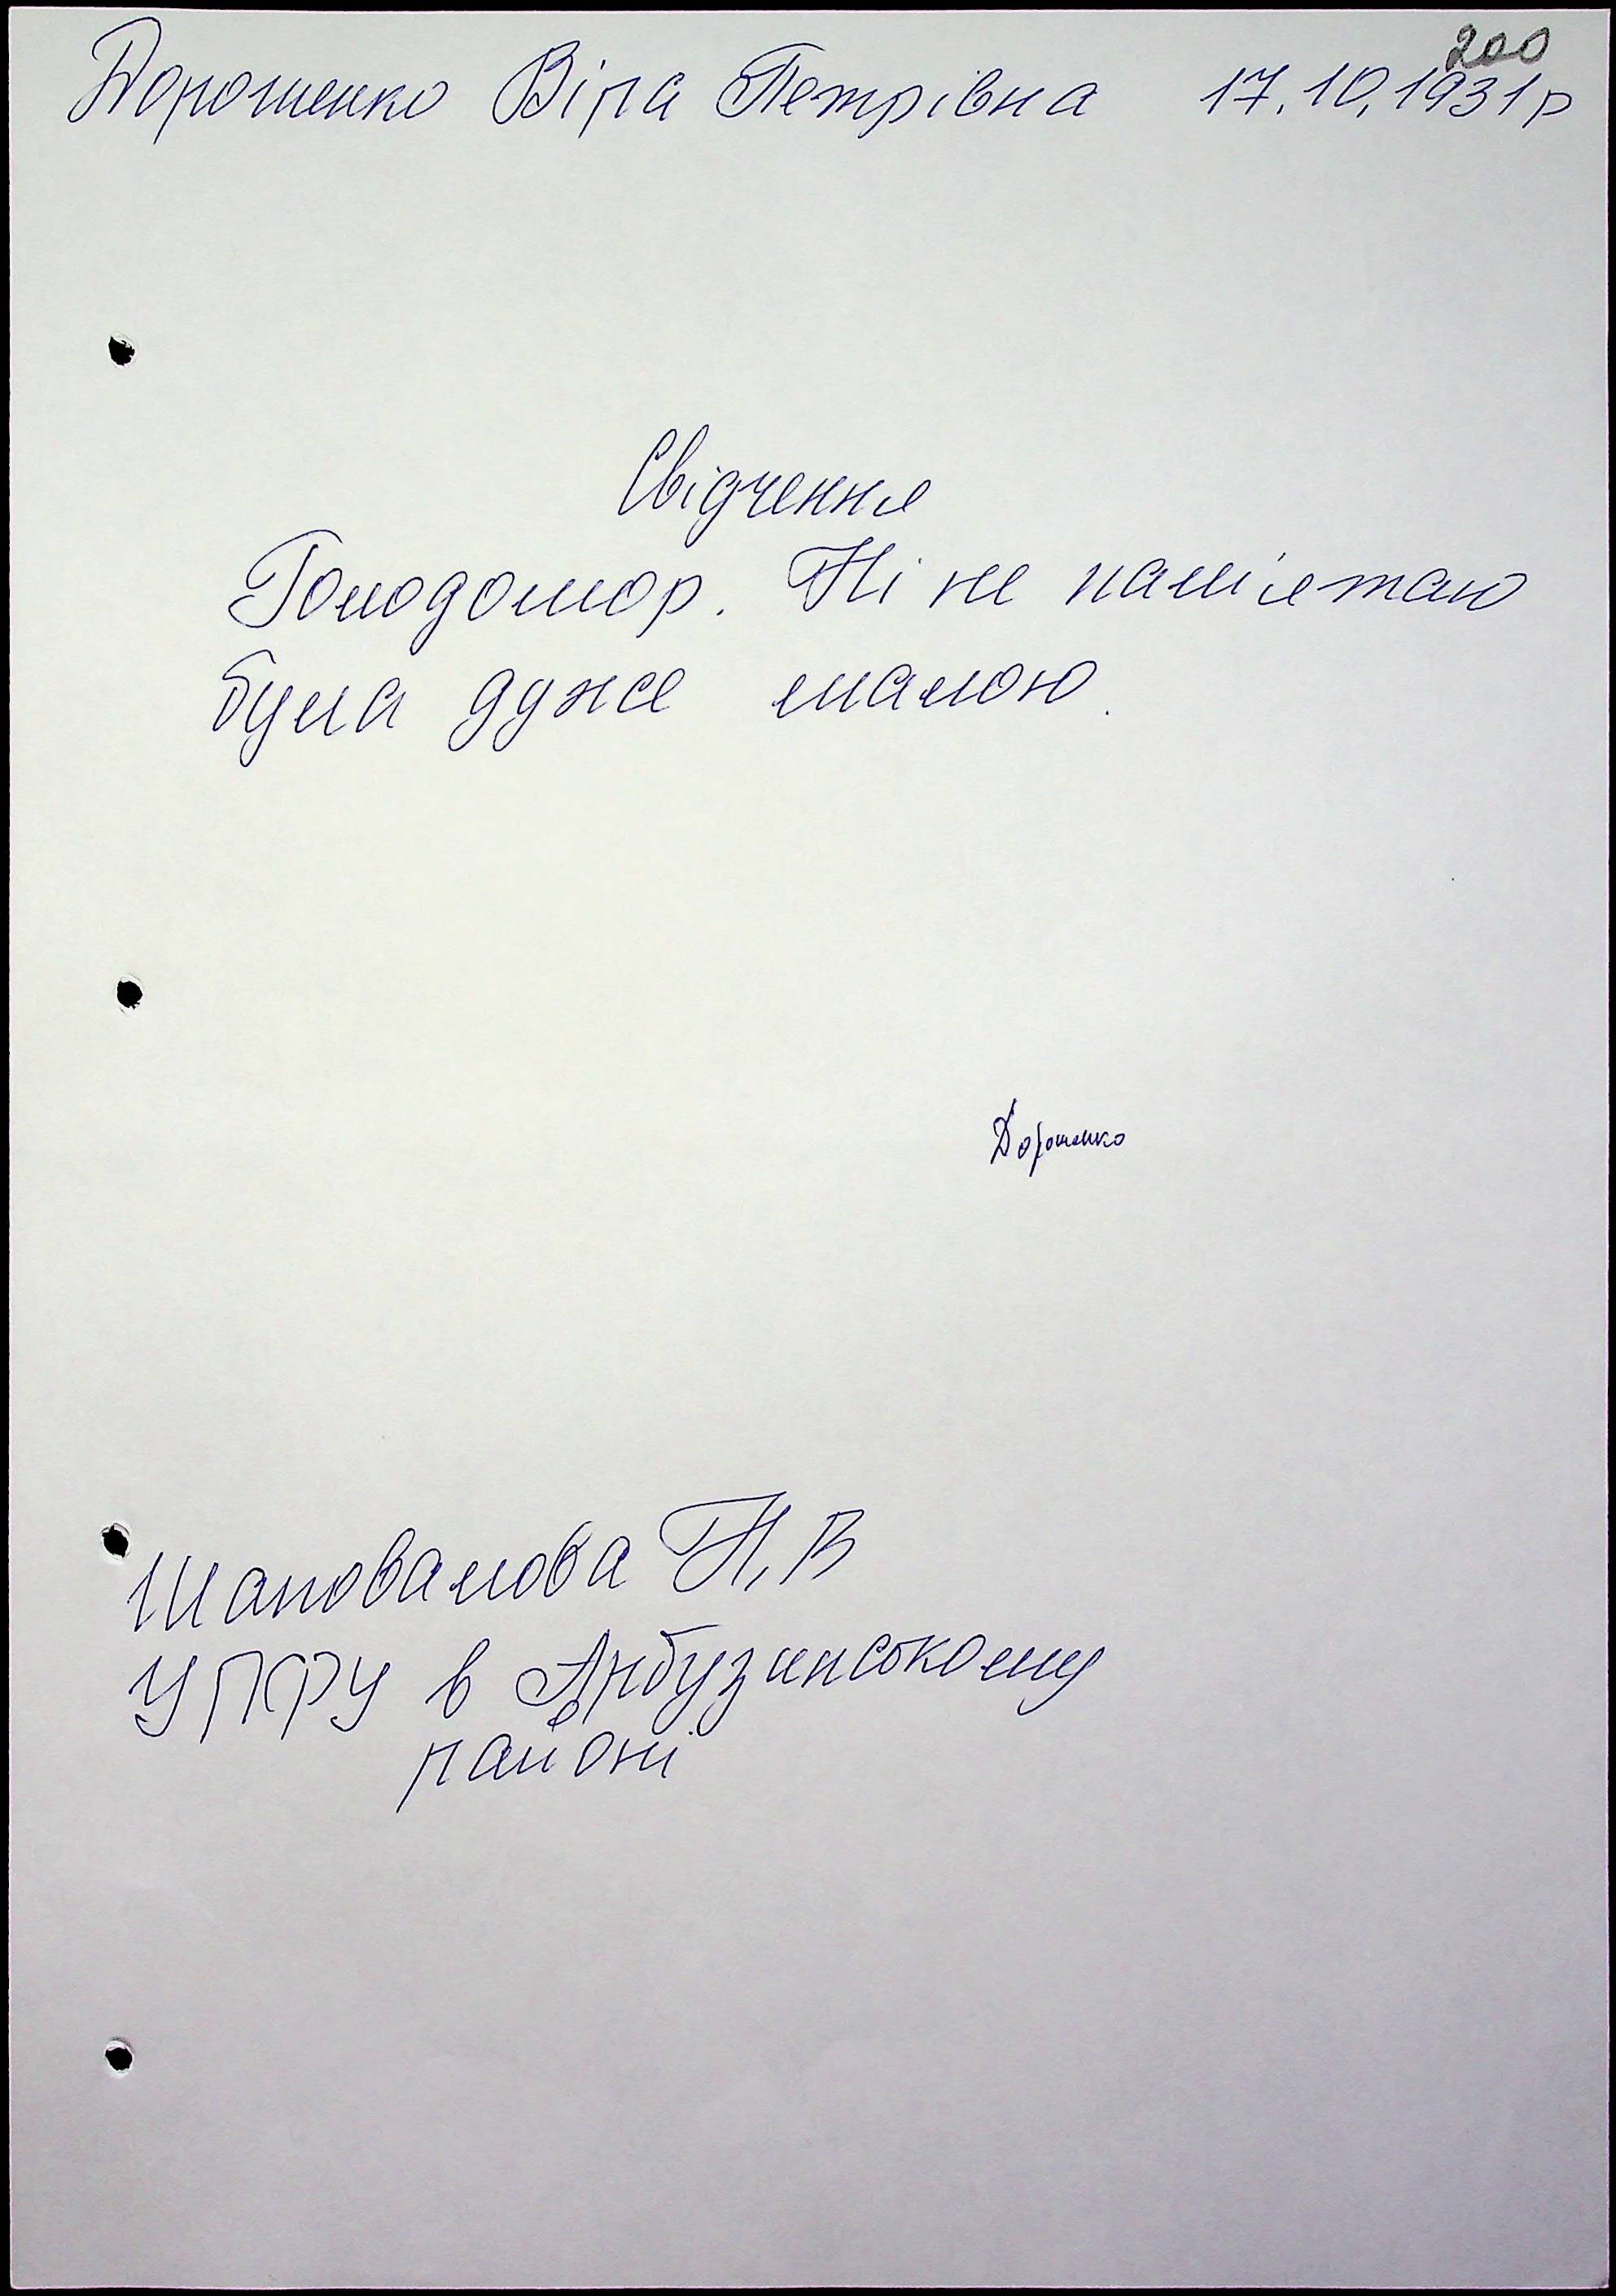 200
Дорошенко Віра Петрівна 17.10.1931р
Свідчення
Голодомор. Ні не паміятаю
була дуже малою.
Дорошенко
Шаповалова Н,В
УПФУ в Арбузинсокому
районі